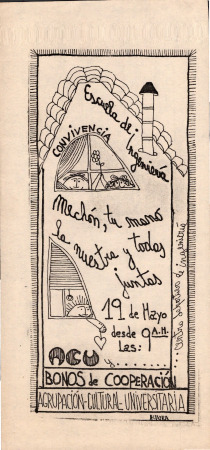 Escuela de
Ingeniería
CONVIVENCIA
Mechón, tu mano
la nuestra y todas
juntas
19 de Mayo
desde 9 A.M.
las:
ACU y......
Centro superior de ingeniería
BONOS de COOPERACIÓN
AGRUPACIÓN-CULTURAL-UNIVERSITARIA